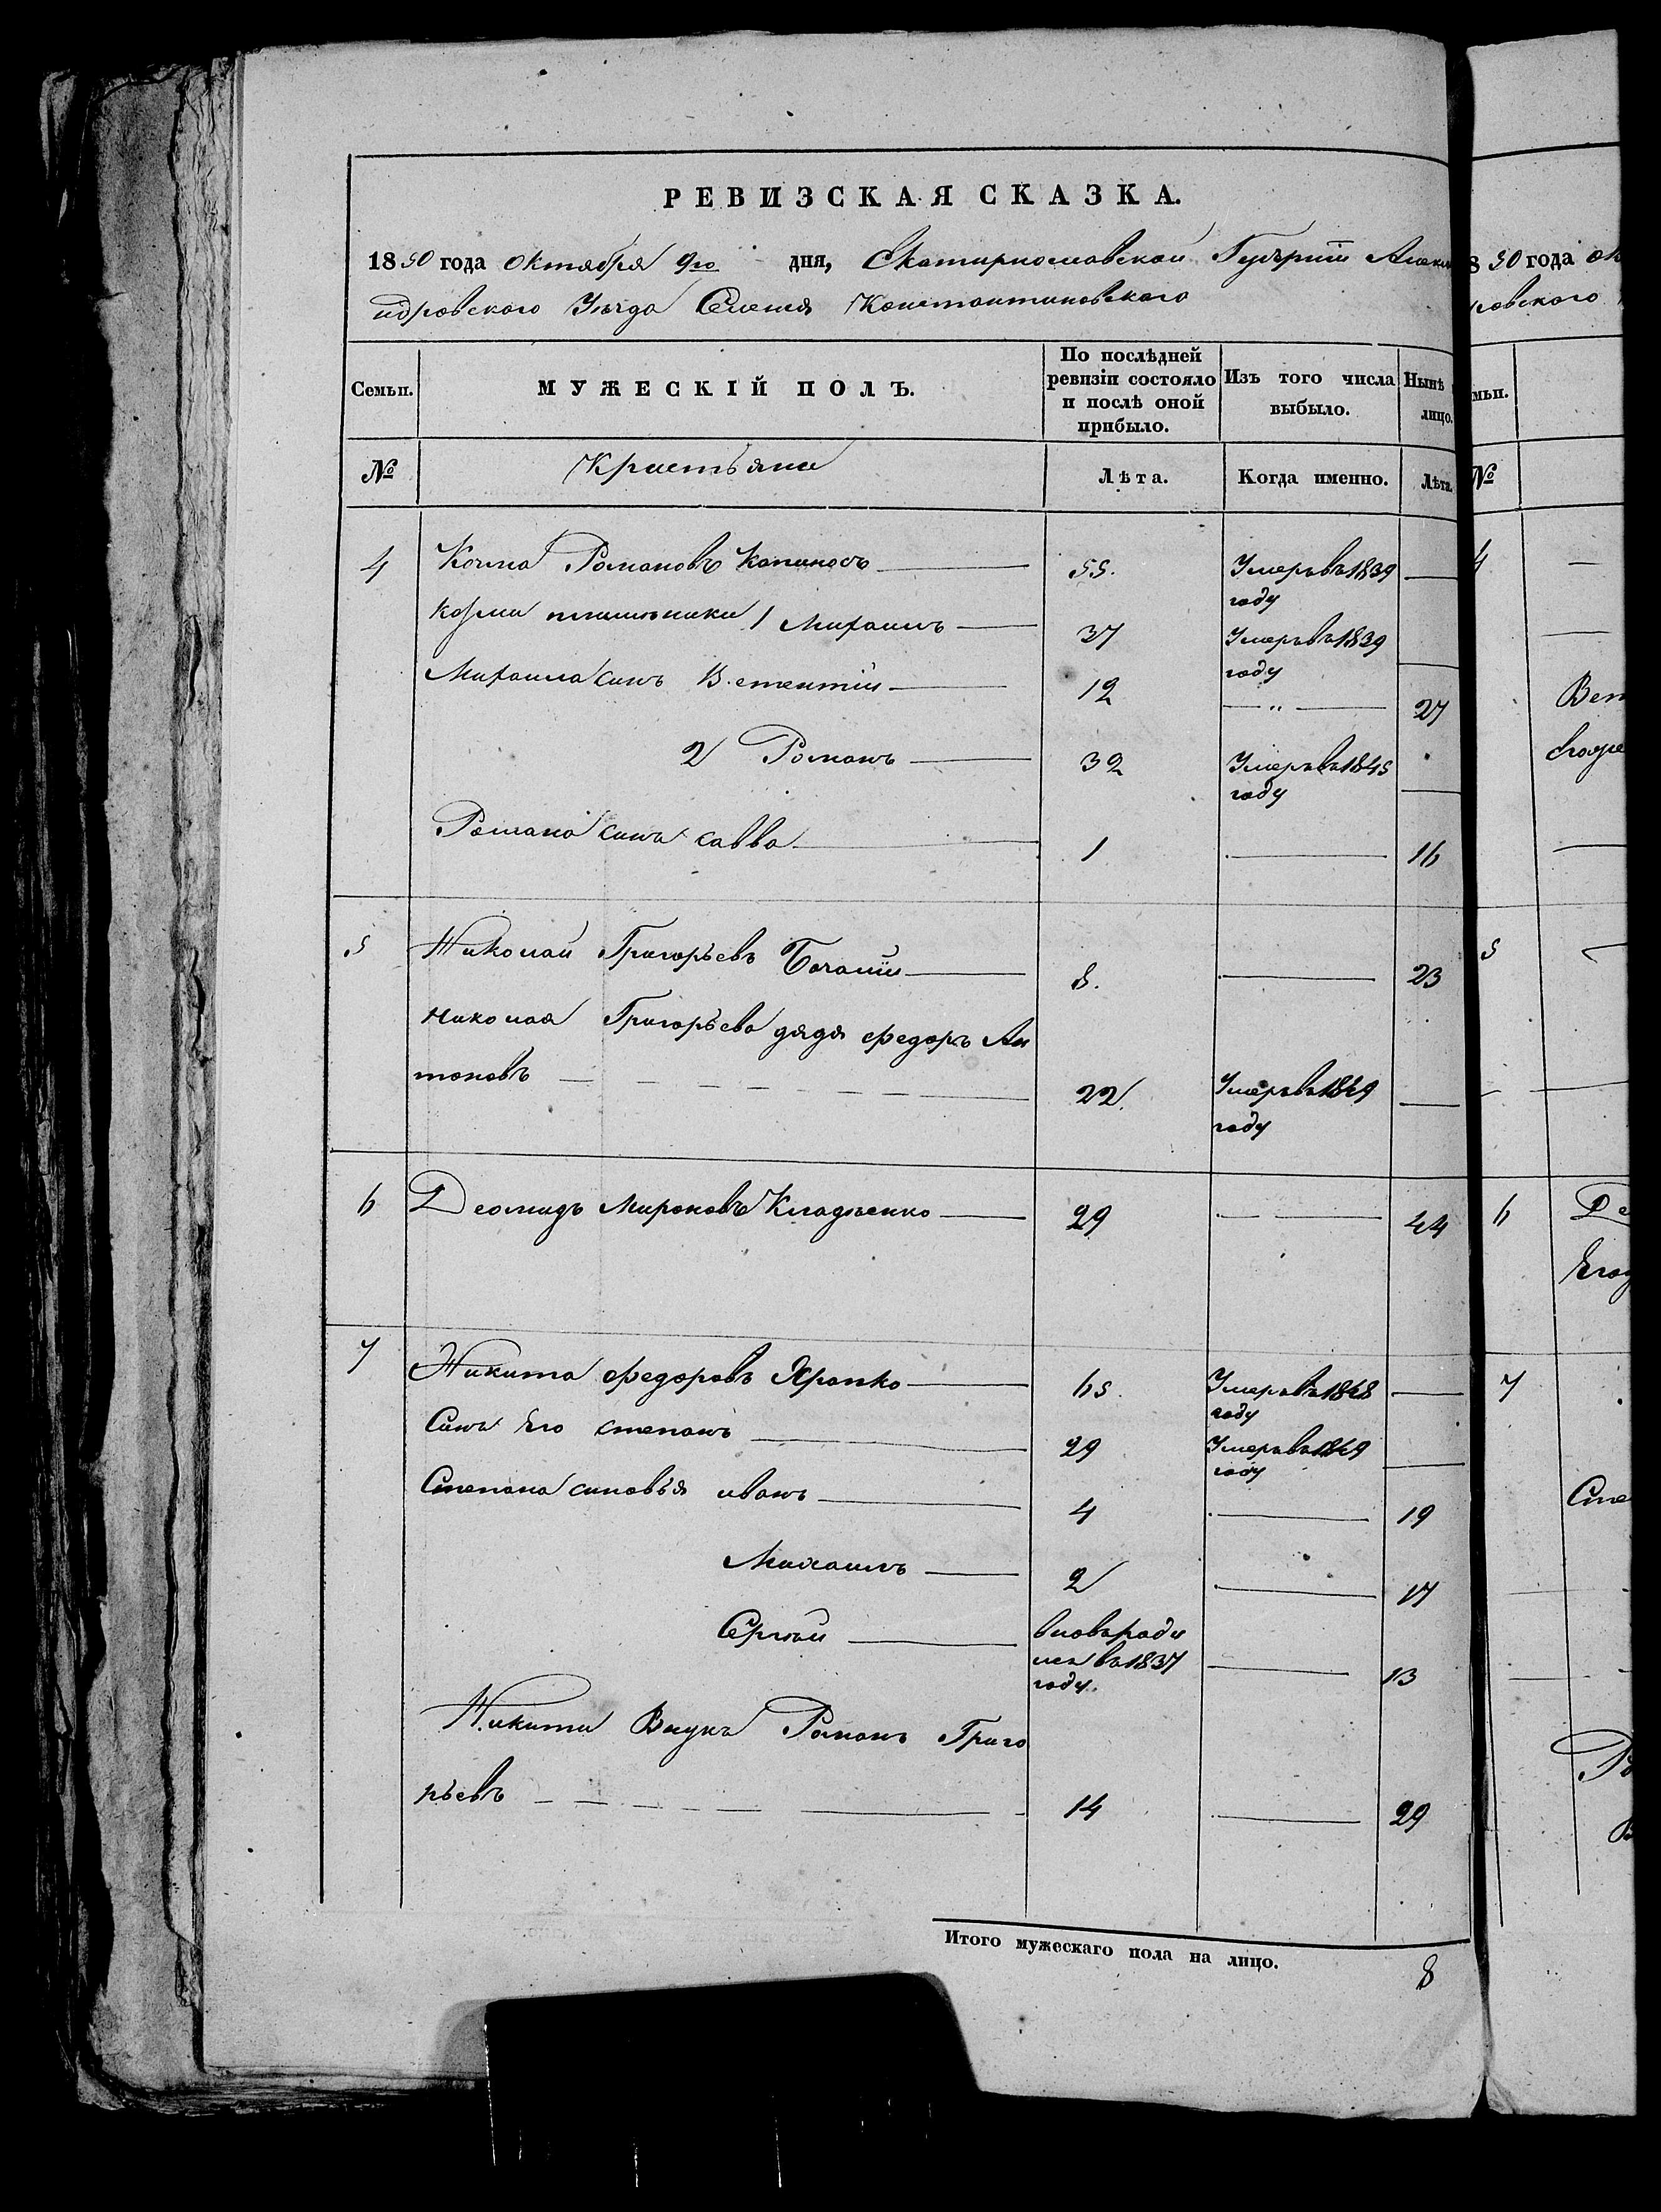 РЕВИЗСКАЯ СКАЗКА.
1850 года Октября 9го дня, Екатеринославской Губернiи Алекса
ндровского Уезда Селенiя Константиновского
Семьи. МУЖЕСКІЙ ПОЛЪ. По послѣдней ревизіи состояло и послѣ оной прибыло. Изъ того числа выбыло. Нынѣ лицо.
№ Крестьяне Лѣта. Когда именно. Лѣта.
4 Козма Романовъ Капиносъ 55. Умеръ въ 1839 году
Козми племьники 1 Михаилъ 37 Умеръ въ 1839 году
Михаила синъ 12 27
2 Романъ 32 Умеръ въ 1845 году
Романа синъ савва 1 16
5 Николай Григорьевъ 8. 23
николая Григорьева дядя федоръ Ан
тоновъ 22. Умеръ въ 1849 году
6 Деомидъ Мироновъ 29 44
7 Никита федоровъ Храпко 65. Умеръ въ 1848 году
Синъ Его степанъ 29 Умеръ въ 1849 году
Степана синовья иванъ 4 19
Михаилъ 2 17
Сергѣй вновъ роди
лся въ 1837
году. 13
Никити Внукъ Романъ Григо
рьевъ 14 29
Итого мужескаго пола на лицо. 8
8 50 года
ровского
мьи.
№
4
5
6
7